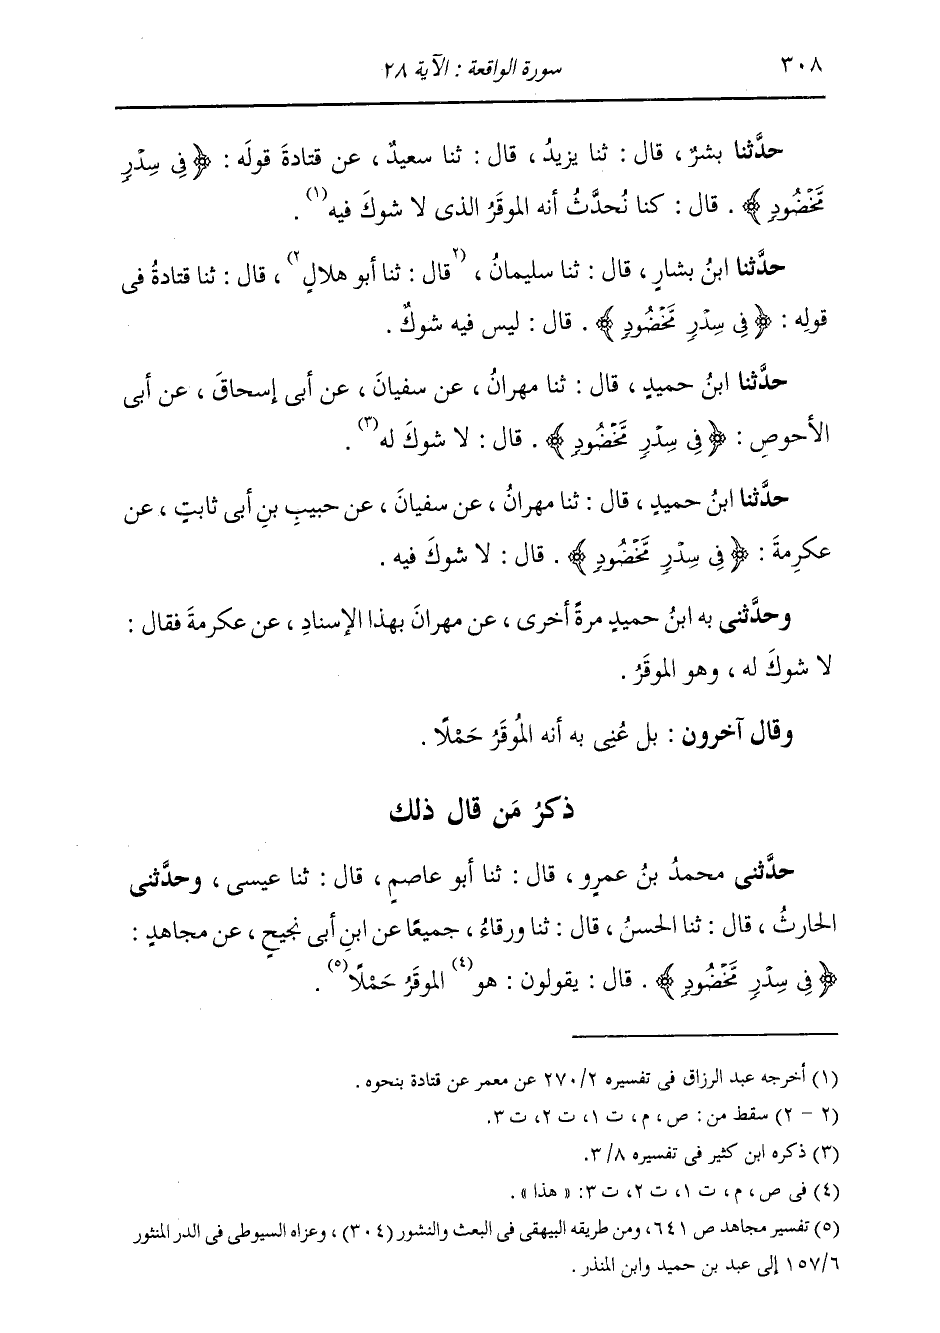 ٣٠٨ سورة الواقعة : الآية ٢٨
حدَّثنا بشرٌ ، قال : ثنا يزيدُ ، قال : ثنا سعيدٌ ، عن قتادةَ قولَه : ﴿ فِى سِدْرٍ
مَّخْضُودٍ ﴾ . قال : كنا نُحدَّثُ أنه الموقَرُ الذى لا شوكَ فيه(١) .
حدَّثنا ابنُ بشارٍ ، قال : ثنا سليمانُ ، (٢قال : ثنا أبو هلالٍ٢) ، قال : ثنا قتادةُ فى
قولِه : ﴿ فِى سِدْرٍ مَّخْضُودٍ ﴾ . قال : ليس فيه شوكٌ .
حدَّثنا ابنُ حميدٍ ، قال : ثنا مهرانُ ، عن سفيانَ ، عن أبى إسحاقَ ، عن أبى
الأحوصِ : ﴿ فِى سِدْرٍ مَّخْضُودٍ ﴾ . قال : لا شوكَ له(٣) .
حدَّثنا ابنُ حميدٍ ، قال : ثنا مهرانُ ، عن سفيانَ ، عن حبيبِ بنِ أبى ثابتٍ ، عن
عكرِمةَ : ﴿ فِى سِدْرٍ مَّخْضُودٍ ﴾ . قال : لا شوكَ فيه .
وحدَّثنى به ابنُ حميدٍ مرةً أخرى ، عن مهرانَ بهذا الإسنادِ ، عن عكرمةَ فقال :
لا شوكَ له ، وهو الموقَرُ .
وقال آخرون : بل عُنِى به أنه المُوقَرُ حَمْلًا .
ذكرُ مَن قال ذلك
حدَّثنى محمدُ بنُ عمرٍو ، قال : ثنا أبو عاصمٍ ، قال : ثنا عيسى ، وحدَّثنى
الحارثُ ، قال : ثنا الحسنُ ، قال : ثنا ورقاءُ ، جميعًا عن ابنِ أبى نجيحٍ ، عن مجاهدٍ :
﴿ فِى سِدْرٍ مَّخْضُودٍ ﴾ . قال : يقولون : هو(٤) الموقَرُ حَمْلًا(٥) .
(١) أخرجه عبد الرزاق فى تفسيره ٢/ ٢٧٠ عن معمر عن قتادة بنحوه .
(٢ - ٢) سقط من : ص ، م ، ت ١، ت ٢، ت ٣.
(٣) ذكره ابن كثير فى تفسيره ٨/ ٣.
(٤) فى ص ، م ، ت ١، ت ٢، ت ٣: « هذا » .
(٥) تفسير مجاهد ص ٦٤١، ومن طريقه البيهقى فى البعث والنشور (٣٠٤) ، وعزاه السيوطى فى الدر المنثور
٦/ ١٥٧ إلى عبد بن حميد وابن المنذر .